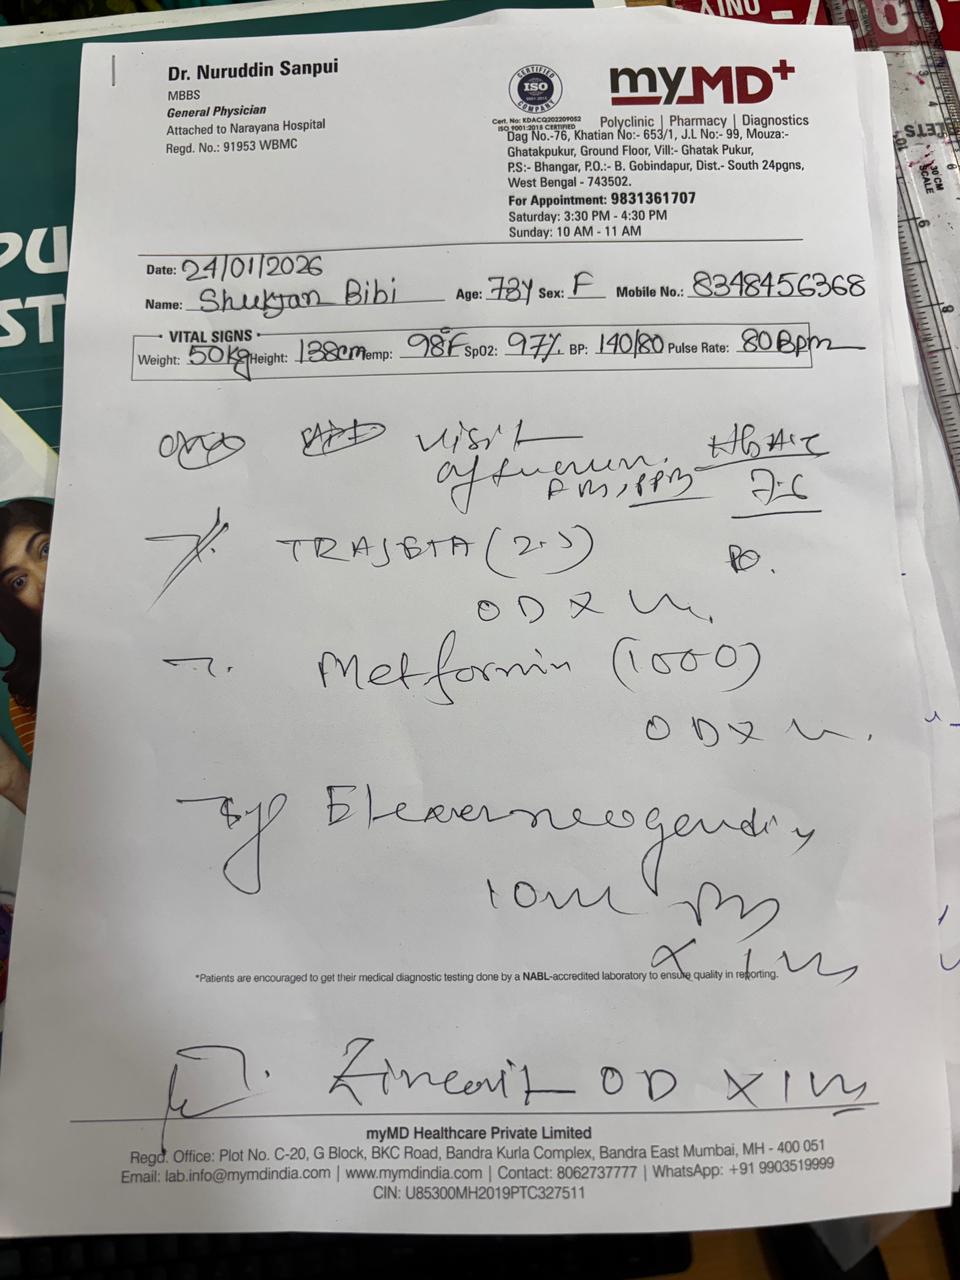 Dr. Nuruddin Sanpui
MBBS
General Physician
Attached to Narayana Hospital
Regd. No.: 91953 WBMC
CERTIFIED
ISO
9001:2015
COMPANY
Cert. No: KDACQ202209052
ISO 9001:2015 CERTIFIED
myMD+
Polyclinic | Pharmacy | Diagnostics
Dag No.-76, Khatian No:- 653/1, J.L No:- 99, Mouza:-
Ghatakpukur, Ground Floor, Vill:- Ghatak Pukur,
P.S:- Bhangar, P.O.:- B. Gobindapur, Dist.- South 24pgns,
West Bengal - 743502.
For Appointment: 9831361707
Saturday: 3:30 PM - 4:30 PM
Sunday: 10 AM - 11 AM
Date: 24/01/2026
Name: Shukjan Bibi Age: 73Y Sex: F Mobile No.: 8348456368
VITAL SIGNS
Weight: 50kg Height: 138cm Temp: 98°F SpO2: 97% BP: 140/80 Pulse Rate: 80Bpm
visit HbA1c
7.6
TRAJETA (2.5)
OD X
T. Metformin (1000)
OD X
Syp
10ml
X 1m
*Patients are encouraged to get their medical diagnostic testing done by a NABL-accredited laboratory to ensure quality in reporting.
T. Zincovit OD X 1m
myMD Healthcare Private Limited
Regd. Office: Plot No. C-20, G Block, BKC Road, Bandra Kurla Complex, Bandra East Mumbai, MH - 400 051
Email: lab.info@mymdindia.com | www.mymdindia.com | Contact: 8062737777 | WhatsApp: +91 9903519999
CIN: U85300MH2019PTC327511
30 CM
SCALE